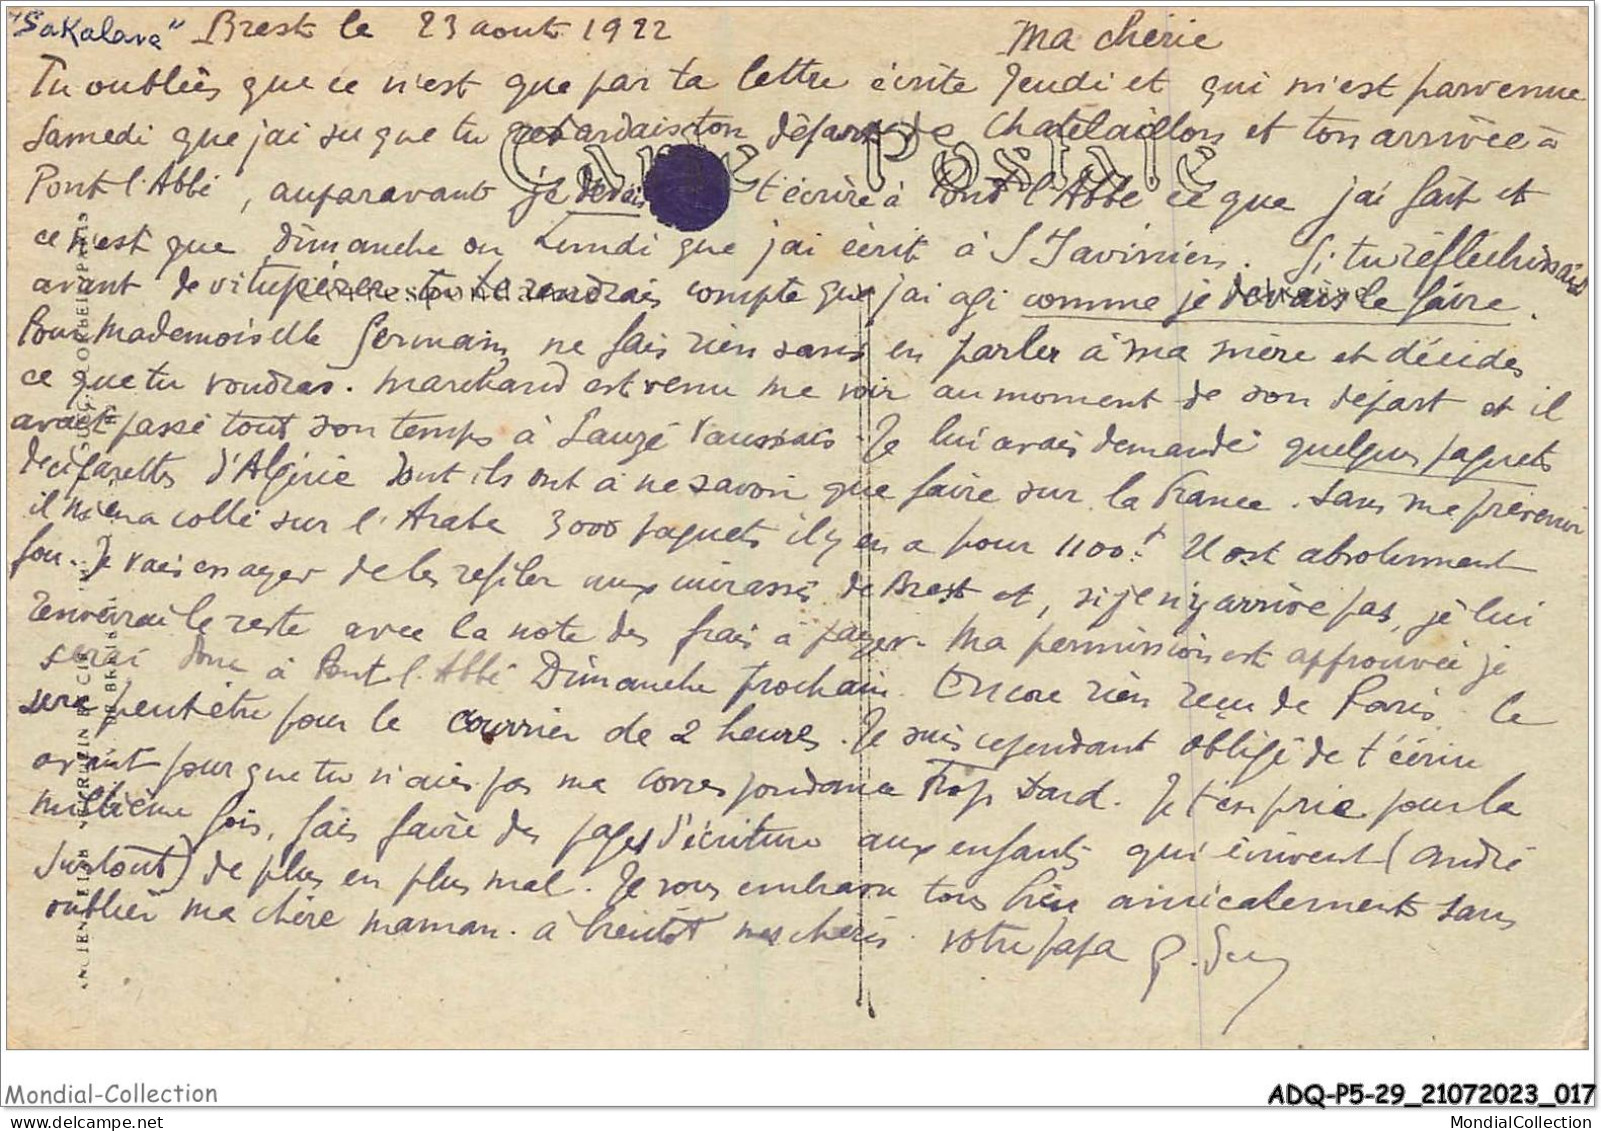 "Sakalave" Brest le 23 aout 1922
Ma chérie
Tu oublies que ce n'est que par ta lettre écrite Jeudi et qui m'est parvenue
Samedi que j'ai su que tu retardais ton départ de Chatelaillon et ton arrivée à
Carte Postale
Pont l'Abbé, auparavant je devais t'écrire à Pont l'Abbé ce que j'ai fait et
ce n'est que dimanche ou Lundi que j'ai écrit à St Savinien. Si tu réfléchissais
avant de vitupérer tu te rendrais compte que j'ai agi comme je devais le faire.
Correspondance
Pour Mademoiselle Germain, ne fais rien sans en parler à ma mère et décides
ce que tu voudras. Marchand est venu me voir au moment de son départ et il
avait passé tout son temps à Sauzé Vaussais. Je lui avais demandé quelques paquets
de cigarettes d'Algérie dont ils ont à ne savoir que faire sur la France. Sans me prévenir
il m'en a collé sur l'Arabe 3000 paquets il y en a pour 1100 f. Il est absolument
fou. Je vais essayer de les refiler aux cuirassés de Brest et, si je n'y arrive pas, je lui
renverrai le reste avec la note des frais à payer. Ma permission est approuvée je
serai donc à Pont l'Abbé Dimanche prochain. Encore rien reçu de Paris. Ce
sera peut être pour le courrier de 2 heures. Je suis cependant obligé de t'écrire
avant pour que tu n'aies pas ma correspondance trop tard. Je t'en prie pour la
millième fois, fais faire des pages d'écriture aux enfants qui écrivent (André
surtout) de plus en plus mal. Je vous embrasse tous bien amicalement sans
oublier ma chère maman. à bientôt mes chéris. votre papa
Mondial-Collection
ADQ-P5-29_21072023_017
MondialCollection